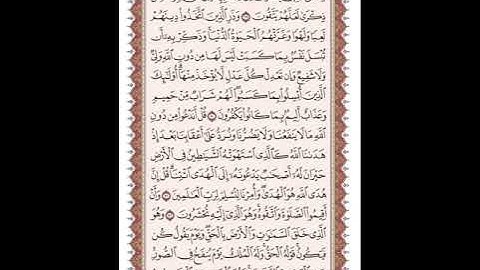 ذِكْرَىٰ لَعَلَّهُمْ يَتَّقُونَ ۝ وَذَرِ ٱلَّذِينَ ٱتَّخَذُوا۟ دِينَهُمْ
لَعِبًا وَلَهْوًا وَغَرَّتْهُمُ ٱلْحَيَوٰةُ ٱلدُّنْيَا ۚ وَذَكِّرْ بِهِۦٓ أَن
تُبْسَلَ نَفْسٌۢ بِمَا كَسَبَتْ لَيْسَ لَهَا مِن دُونِ ٱللَّهِ وَلِىٌّ
وَلَا شَفِيعٌ وَإِن تَعْدِلْ كُلَّ عَدْلٍ لَّا يُؤْخَذْ مِنْهَآ ۗ أُو۟لَٰٓئِكَ
ٱلَّذِينَ أُبْسِلُوا۟ بِمَا كَسَبُوا۟ ۖ لَهُمْ شَرَابٌ مِّنْ حَمِيمٍ
وَعَذَابٌ أَلِيمٌۢ بِمَا كَانُوا۟ يَكْفُرُونَ ۝ قُلْ أَنَدْعُوا۟ مِن دُونِ
ٱللَّهِ مَا لَا يَنفَعُنَا وَلَا يَضُرُّنَا وَنُرَدُّ عَلَىٰٓ أَعْقَابِنَا بَعْدَ إِذْ
هَدَىٰنَا ٱللَّهُ كَٱلَّذِى ٱسْتَهْوَتْهُ ٱلشَّيَٰطِينُ فِى ٱلْأَرْضِ
حَيْرَانَ لَهُۥٓ أَصْحَٰبٌ يَدْعُونَهُۥٓ إِلَى ٱلْهُدَى ٱئْتِنَا ۗ قُلْ إِنَّ
هُدَى ٱللَّهِ هُوَ ٱلْهُدَىٰ ۖ وَأُمِرْنَا لِنُسْلِمَ لِرَبِّ ٱلْعَٰلَمِينَ ۝ وَأَنْ
أَقِيمُوا۟ ٱلصَّلَوٰةَ وَٱتَّقُوهُ ۚ وَهُوَ ٱلَّذِىٓ إِلَيْهِ تُحْشَرُونَ ۝ وَهُوَ
ٱلَّذِى خَلَقَ ٱلسَّمَٰوَٰتِ وَٱلْأَرْضَ بِٱلْحَقِّ ۖ وَيَوْمَ يَقُولُ كُن
فَيَكُونُ ۚ قَوْلُهُ ٱلْحَقُّ ۚ وَلَهُ ٱلْمُلْكُ يَوْمَ يُنفَخُ فِى ٱلصُّورِ